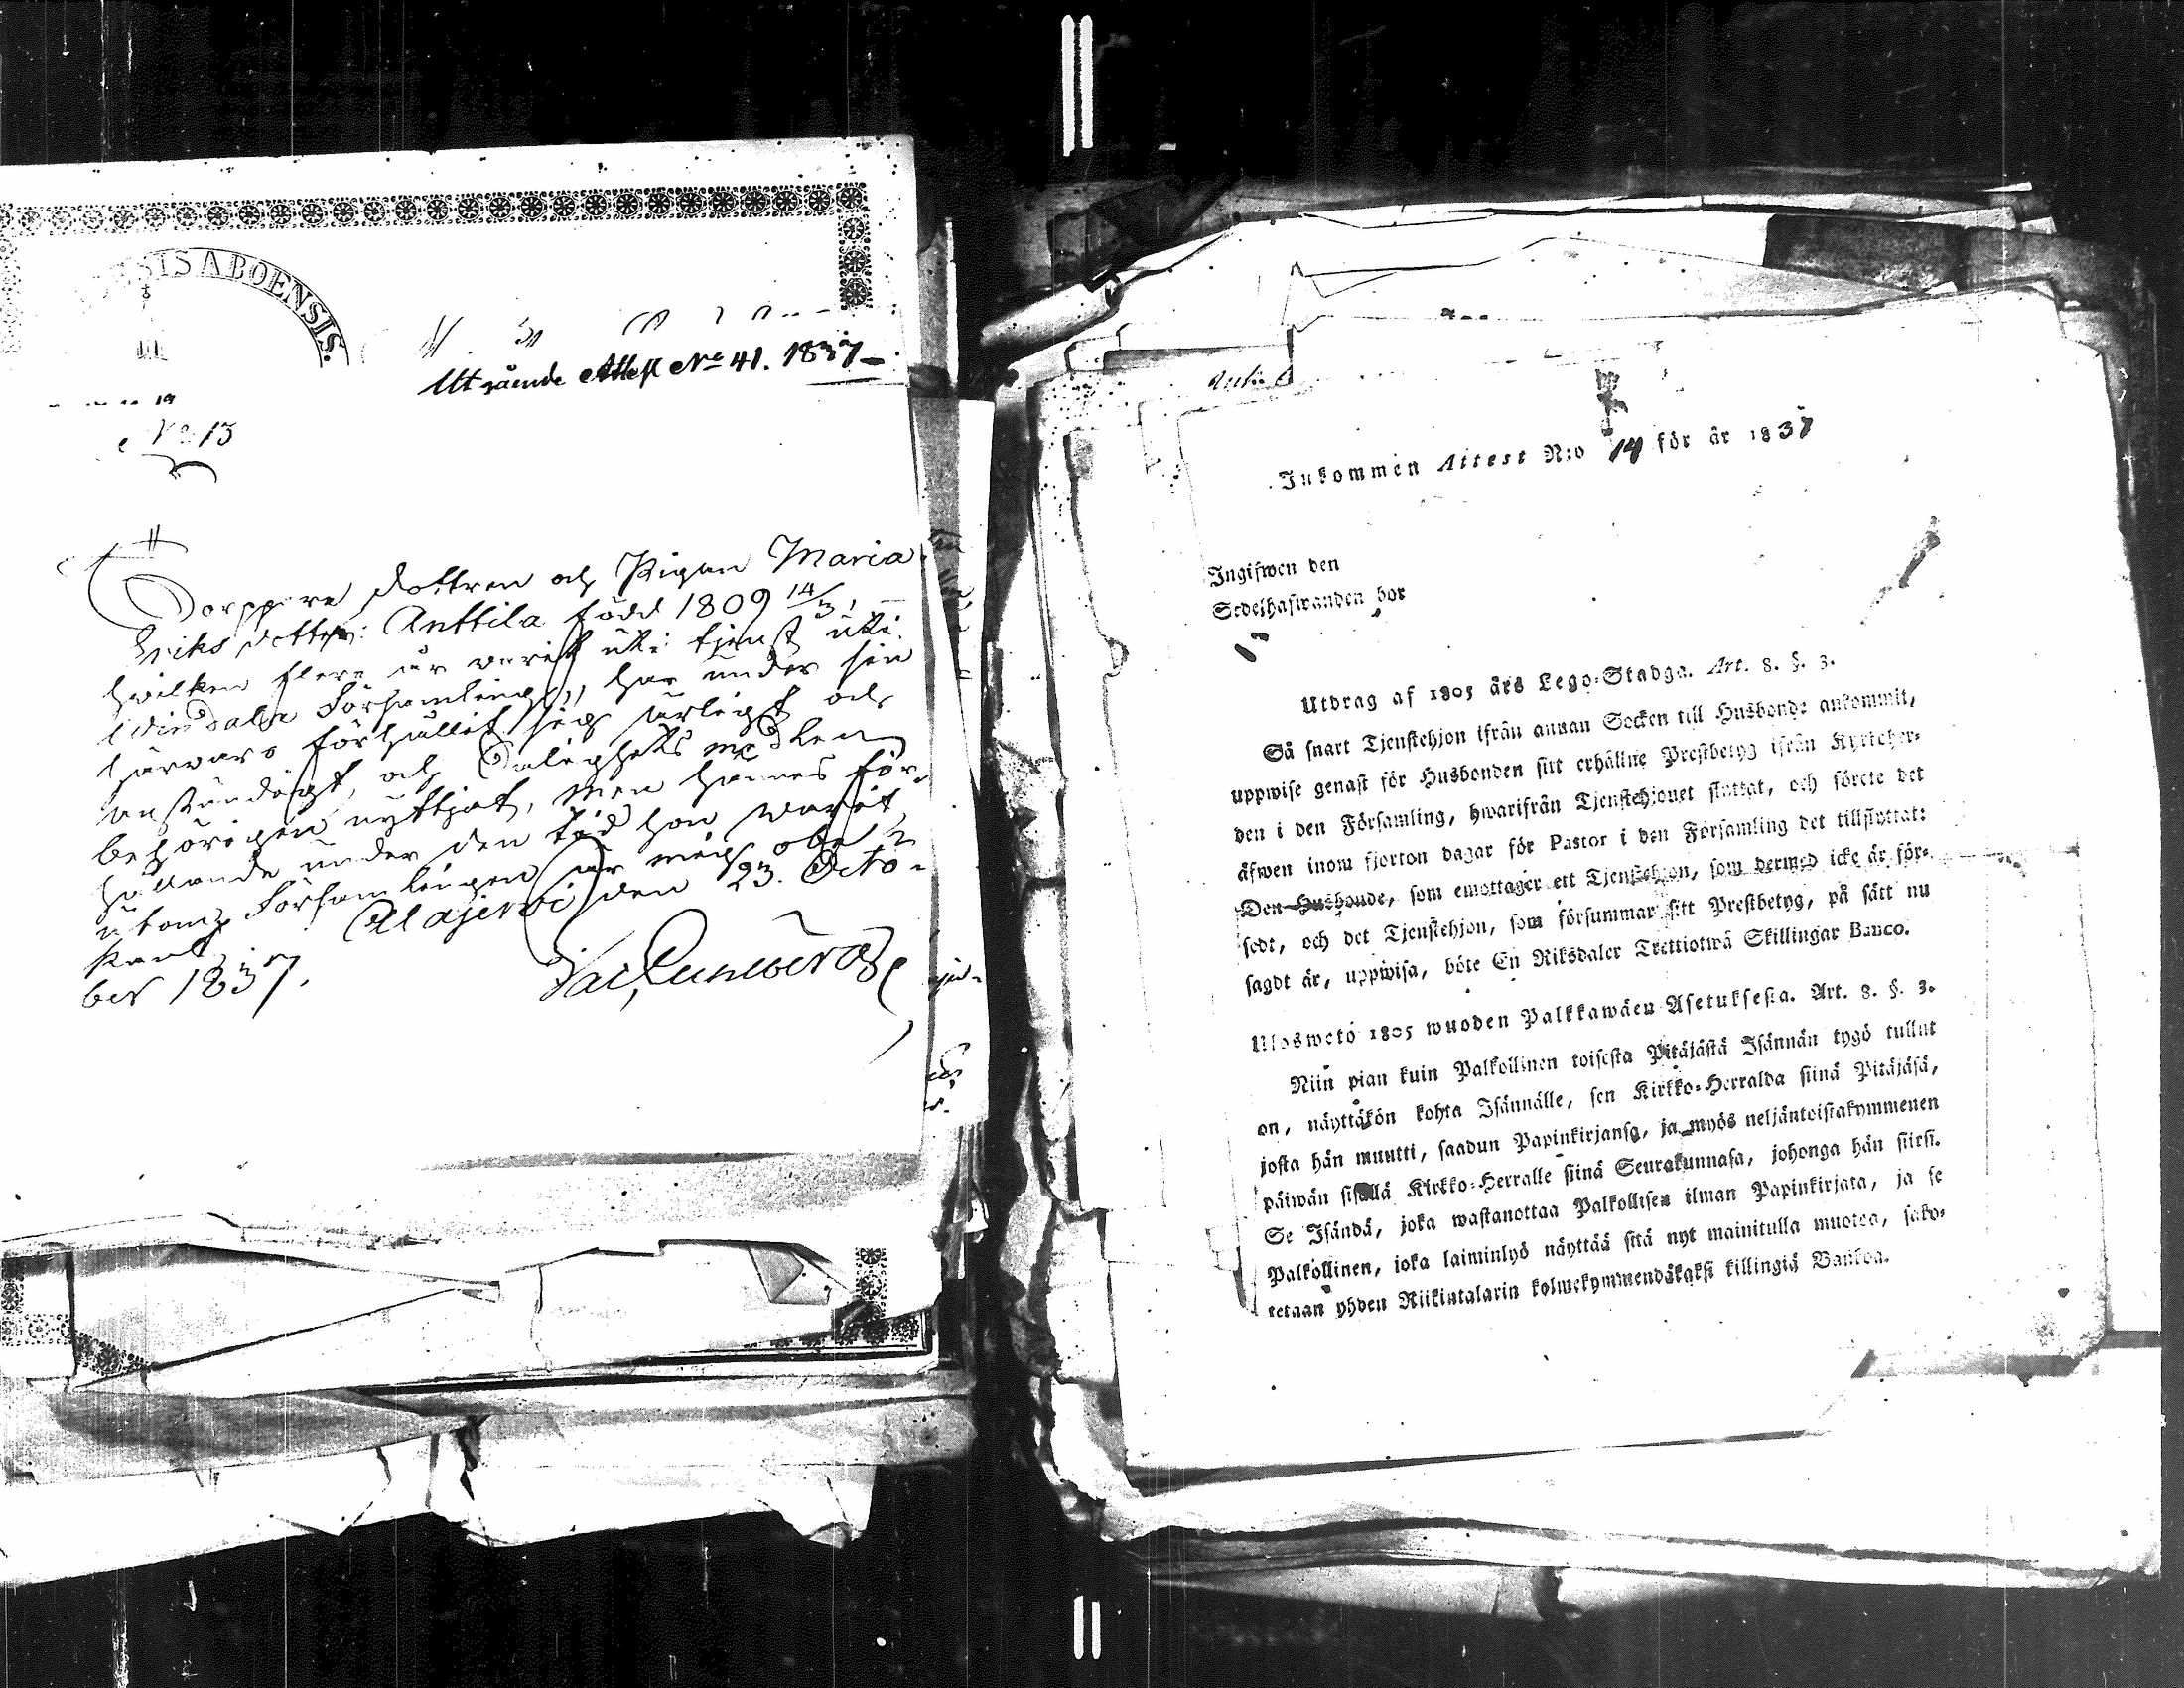 SIS ABOENSIS.
Utgående Attest No 41. 1837
No 13
Torppare dottren och Pigan Maria
Eriksdotter Anttila född 1809 14/3,
hvilken flere år varit uti tjenst uti
Församling, har under sin
härvaro förhållit sig ärligt och
anständigt, och Salighets medlen
behörigen nyttjat, men hennes för-
hållande under den tid hon warit
utom Församlingen är mig obe-
kant. Alajerwi den 23. Octo-
ber 1837.
Inkommen Attest N:o 14 för år 1837
Ingifwen den
Sedelhafwanden bor
i
Utdrag af 1805 års Lego-Stadga. Art. 8. §. 3.
Så snart Tjenstehjon ifrån annan Socken till Husbonde ankommit,
uppwise genast för Husbonden sitt erhållne Prestbetyg ifrån Kyrkoher-
den i den Församling, hwarifrån Tjenstehjonet flyttat, och förete det
äfwen inom fjorton dagar för Pastor i den Församling det tillflyttat:
Den Husbonde, som emottager ett Tjenstehjon, som dermed icke är för-
sedt, och det Tjenstehjon, som försummar sitt Prestbetyg, på sätt nu
sagdt är, uppwisa, böte En Riksdaler Trettiotwå Skillingar Banco.
Uloswetö 1805 wuoden Palkkawäen Asetuksesta. Art. 8. §. 3.
Niin pian kuin Palkollinen toisesta Pitäjästä Isännän tygö tullut
on, näyttäkön kohta Isännälle, sen Kirkko-Herralda siinä Pitäjäsä,
josta hän muutti, saadun Papinkirjansa, ja myös neljäntoistakymmenen
päiwän sisällä Kirkko-Herralle siinä Seurakunnasa, johonga hän siirsi.
Se Isändä, joka wastanottaa Palkollisen ilman Papinkirjata, ja se
Palkollinen, joka laiminlyö näyttää sitä nyt mainitulla muotoa, sako-
tetaan yhden Riikintalarin kolmekymmendäkaksi killingiä Bankoa.